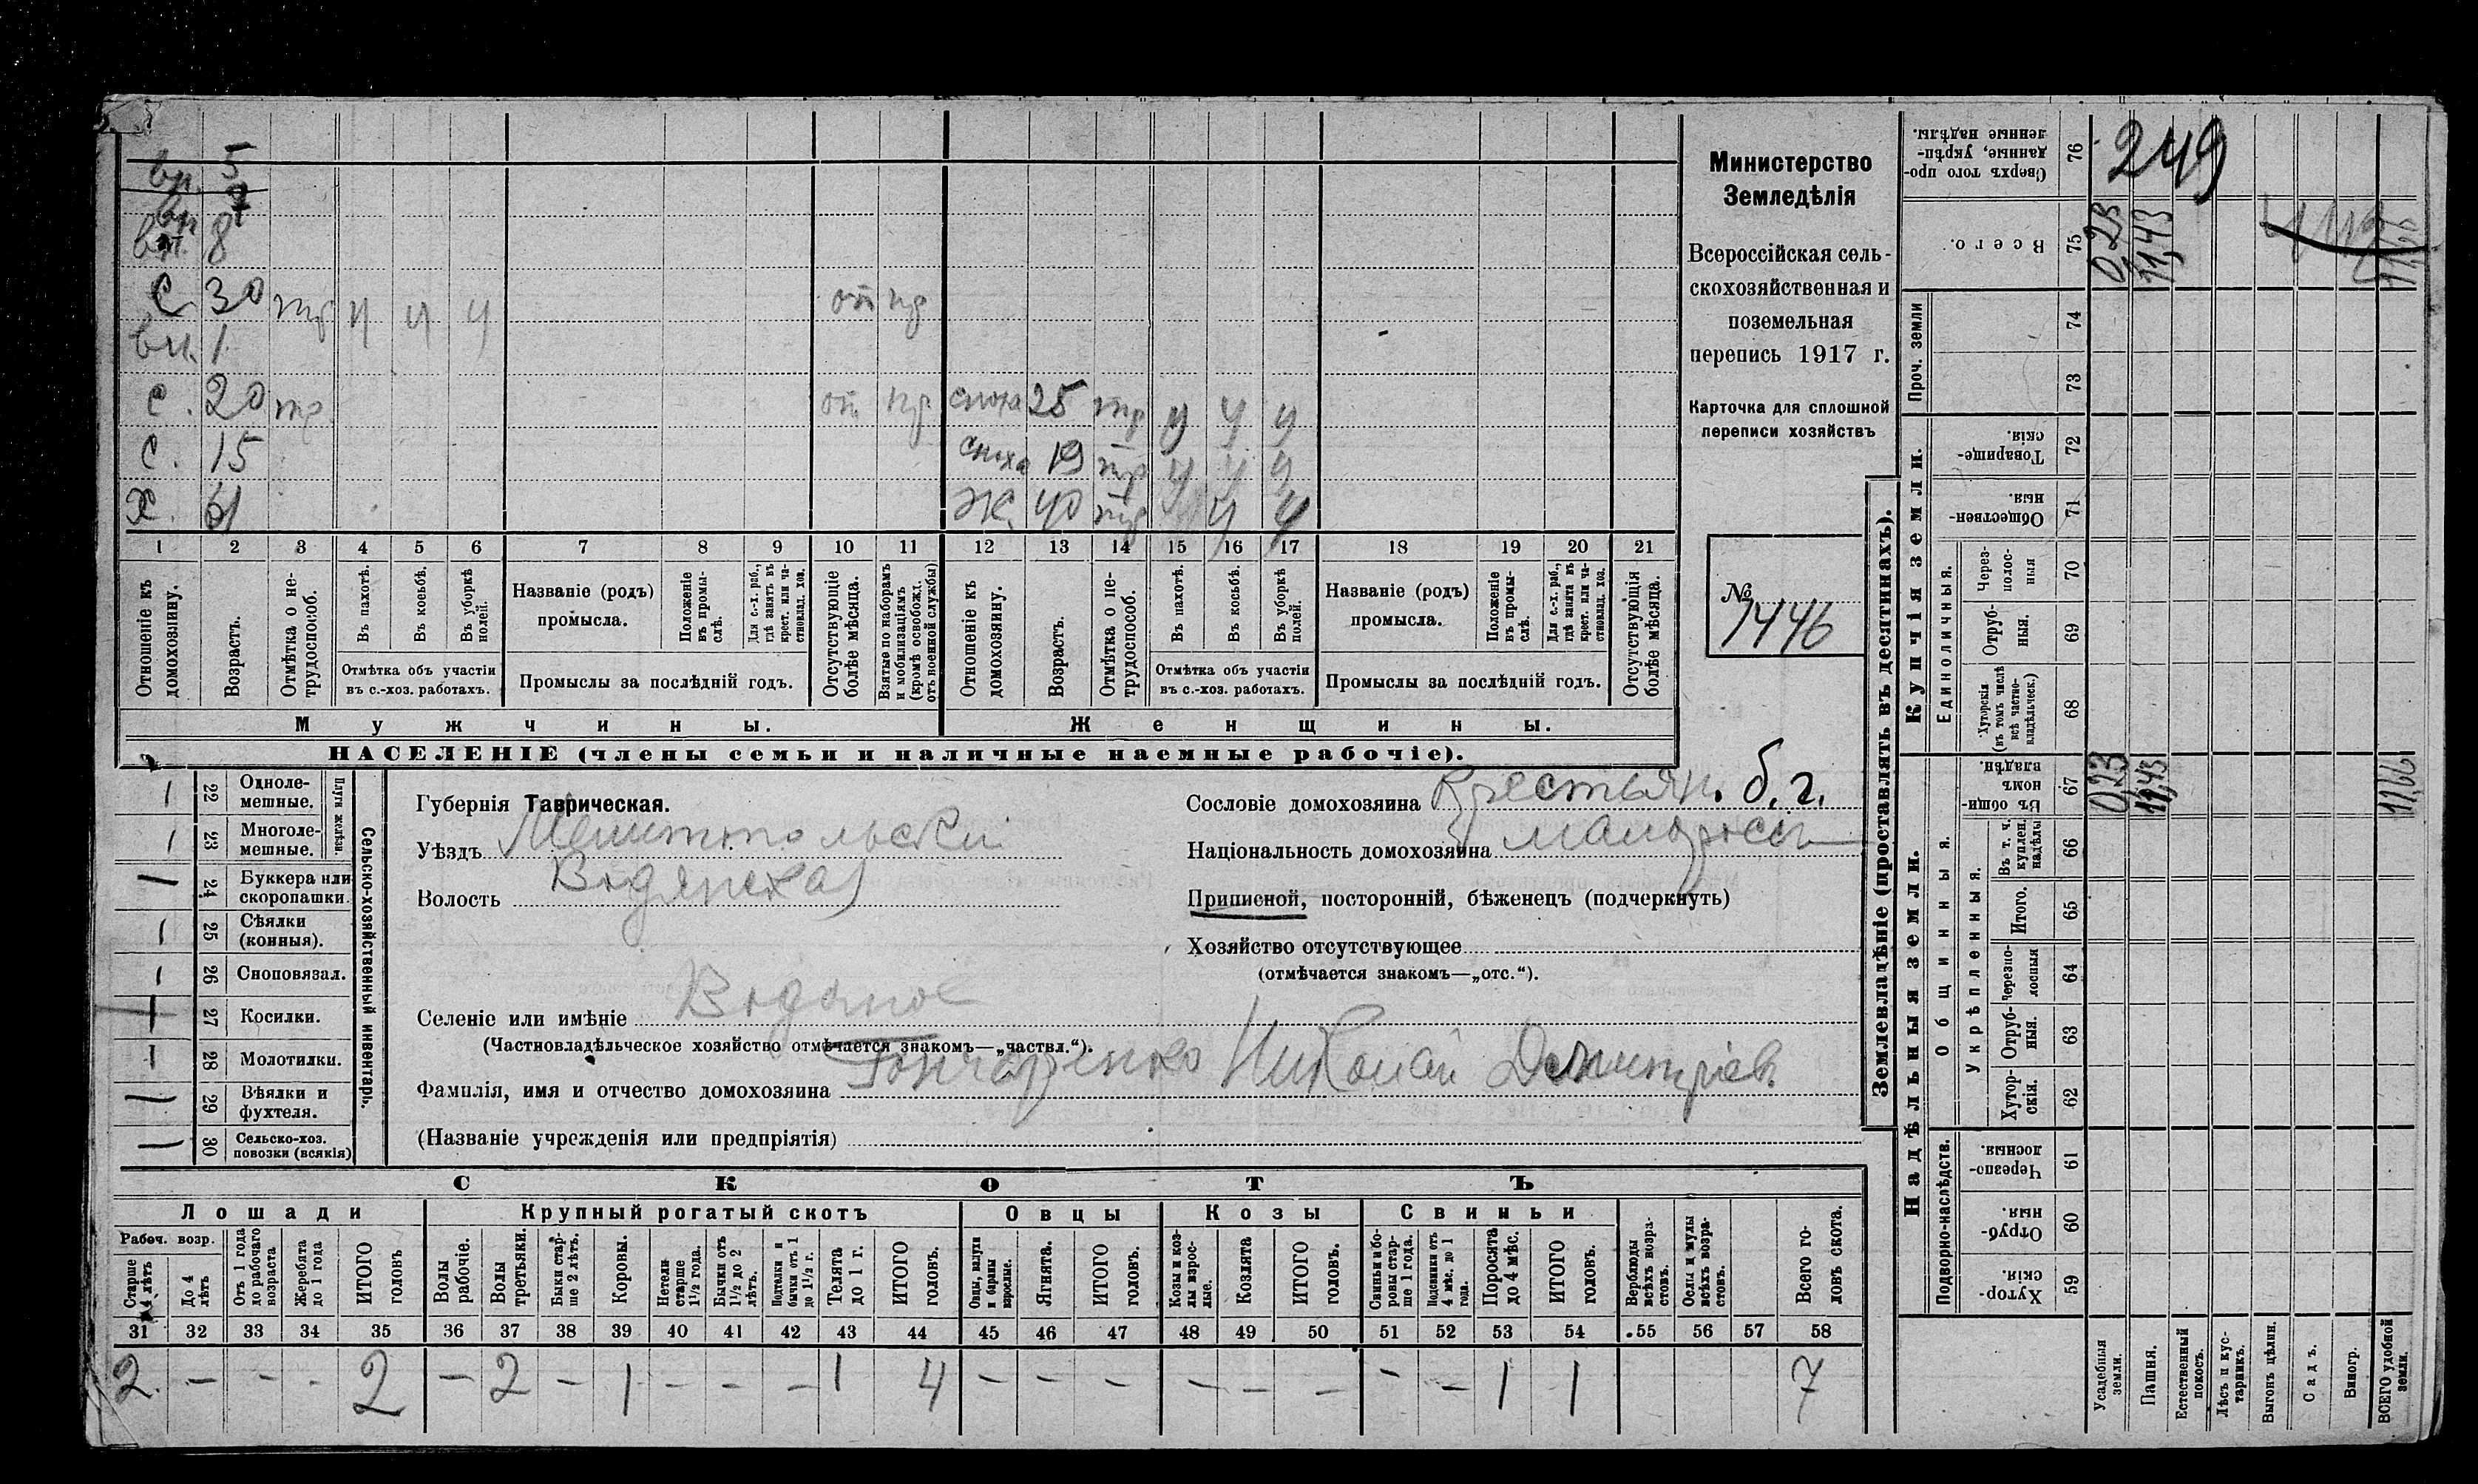 вн. 5
вн 7
вн. 8
С 30 тр ч ч ч от пр
вн. 1
С. 20 тр от пр сноха 25 тр ч ч ч
С. 15 сноха 19 тр ч ч ч
Х. 61 Ж. 40 тр ч ч
1 2 3 4 5 6 7 8 9 10 11 12 13 14 15 16 17 18 19 20 21
Отношеніе къ домохозяину.
Возрастъ.
Отмѣтка о нетрудоспособ.
Въ пахотѣ.
Въ косьбѣ.
Въ уборкѣ полей.
Отмѣтка объ участіи
въ с.-хоз. работахъ.
Названіе (родъ)
промысла.
Положеніе въ промыслѣ.
Для с.-х. раб., гдѣ занятъ въ крест. или частновлад. хоз.
Промыслы за послѣдній годъ.
Отсутствующіе болѣе мѣсяца.
Взятые по наборамъ и мобилизаціямъ (кромѣ освобожд. отъ военной службы)
Отношеніе къ домохозяину.
Возрастъ.
Отмѣтка о нетрудоспособ.
Въ пахотѣ.
Въ косьбѣ.
Въ уборкѣ полей.
Отмѣтка объ участіи
въ с.-хоз. работахъ.
Названіе (родъ)
промысла.
Положеніе въ промыслѣ.
Для с.-х. раб., гдѣ занята въ крест. или частновлад. хоз.
Промыслы за послѣдній годъ.
Отсутствующія болѣе мѣсяца.
Мужчины.
Женщины.
НАСЕЛЕНІЕ (члены семьи и наличные наемные рабочіе).
Министерство
Земледѣлія
Всероссійская сель-
скохозяйственная и
поземельная
перепись 1917 г.
Карточка для сплошной
переписи хозяйствъ
№
1446
22 Одноле-
мешные.
23 Многоле-
мешные.
Плуги желѣзн.
24 Буккера или
скоропашки.
25 Сѣялки
(конныя).
26 Сноповязал.
27 Косилки.
28 Молотилки.
29 Вѣялки и
фухтеля.
30 Сельско-хоз.
повозки (всякія)
Сельско-хозяйственный инвентарь.
Губернія Таврическая.
Уѣздъ Мелитопольскій
Волость Водянская
Селеніе или имѣніе Водяное
(Частновладѣльческое хозяйство отмѣчается знакомъ—„частвл.“).
Фамилія, имя и отчество домохозяина Гончаренко Николай Дмитріев.
(Названіе учрежденія или предпріятія)
Сословіе домохозяина Крестьян. б. г.
Національность домохозяина малоросс
Приписной, посторонній, бѣженецъ (подчеркнуть)
Хозяйство отсутствующее
(отмѣчается знакомъ—„отс.“).
СКОТЪ
Лошади
Крупный рогатый скотъ
Овцы
Козы
Свиньи
Рабоч. возр.
Старше 4 лѣтъ
До 4 лѣтъ
Отъ 1 года до рабочаго возраста
Жеребята до 1 года
ИТОГО головъ
Волы рабочіе.
Волы третьяки.
Быки старше 2 лѣтъ.
Коровы.
Нетели старше 1½ года.
Бычки отъ 1½ до 2 лѣтъ.
Подтелки и бычки отъ 1 до 1½ г.
Телята до 1 г.
ИТОГО головъ.
Овцы, валухи и бараны взрослые.
Ягнята.
ИТОГО головъ.
Козы и козлы взрослые.
Козлята
ИТОГО головъ.
Свиньи и боровы старше 1 года.
Подсвинки отъ 4 мѣс. до 1 года.
Поросята до 4 мѣс.
ИТОГО головъ.
Верблюды всѣхъ возрастовъ.
Ослы и мулы всѣхъ возрастовъ.
Всего головъ скота.
31 32 33 34 35 36 37 38 39 40 41 42 43 44 45 46 47 48 49 50 51 52 53 54 55 56 57 58
2 — - - 2 — 2 — 1 - - — 1 4 — — — — — — - — 1 1 7
Землевладѣніе (проставлять въ десятинахъ).
Купчія земли.
Надѣльныя земли.
Сверхъ того проданные, укрѣпленные надѣлы. 76
249
Всего. 75
0,23
11,43
11,66
Проч. земли
74
73
Товарищескія. 72
Общественныя. 71
Единоличныя.
Черезполосныя 70
Отрубныя. 69
Хуторскія (въ томъ числѣ всѣ частновладѣльческ.) 68
Общинныя.
Въ общинномъ владѣн. 67
0,23
11,43
11,66
Укрѣпленныя.
Въ т. ч. куплен. надѣлы 66
Итого. 65
Черезполосныя 64
Отрубныя. 63
Хуторскія. 62
Подворно-наслѣдств.
Черезполосныя. 61
Отрубныя. 60
Хуторскія. 59
Усадебныя земли.
Пашня.
Естественный покосъ.
Лѣсъ и кустарникъ.
Выгонъ цѣлин.
Садъ.
Виногр.
ВСЕГО удобной земли.